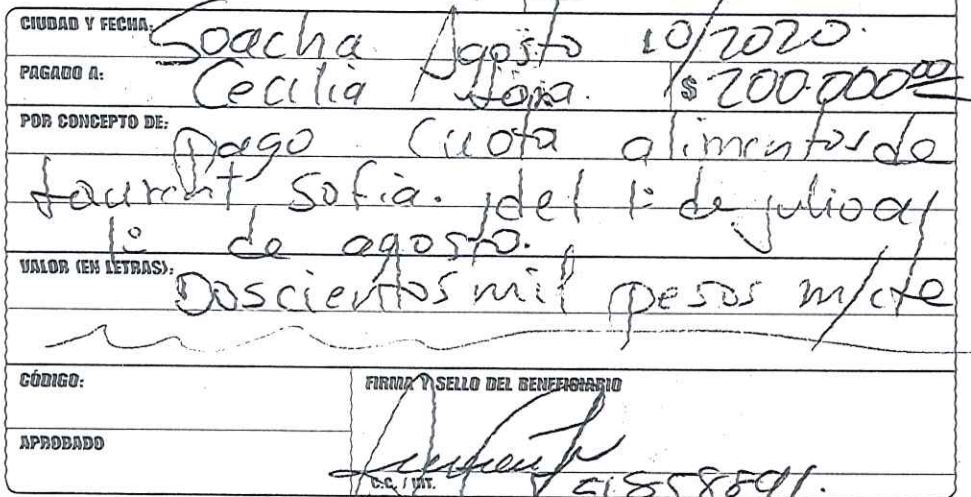 CIUDAD Y FECHA: Soacha Agosto 10/2020.
PAGADO A: Cecilia $ 200.000⁰⁰
POR CONCEPTO DE: Pago Cuota alimentos de
Laurent Sofia. del 1º de julio al
1º de agosto.
VALOR (EN LETRAS): Doscientos mil pesos m/cte
CÓDIGO: FIRMA Y SELLO DEL BENEFICIARIO
APROBADO
C.C. / NIT.